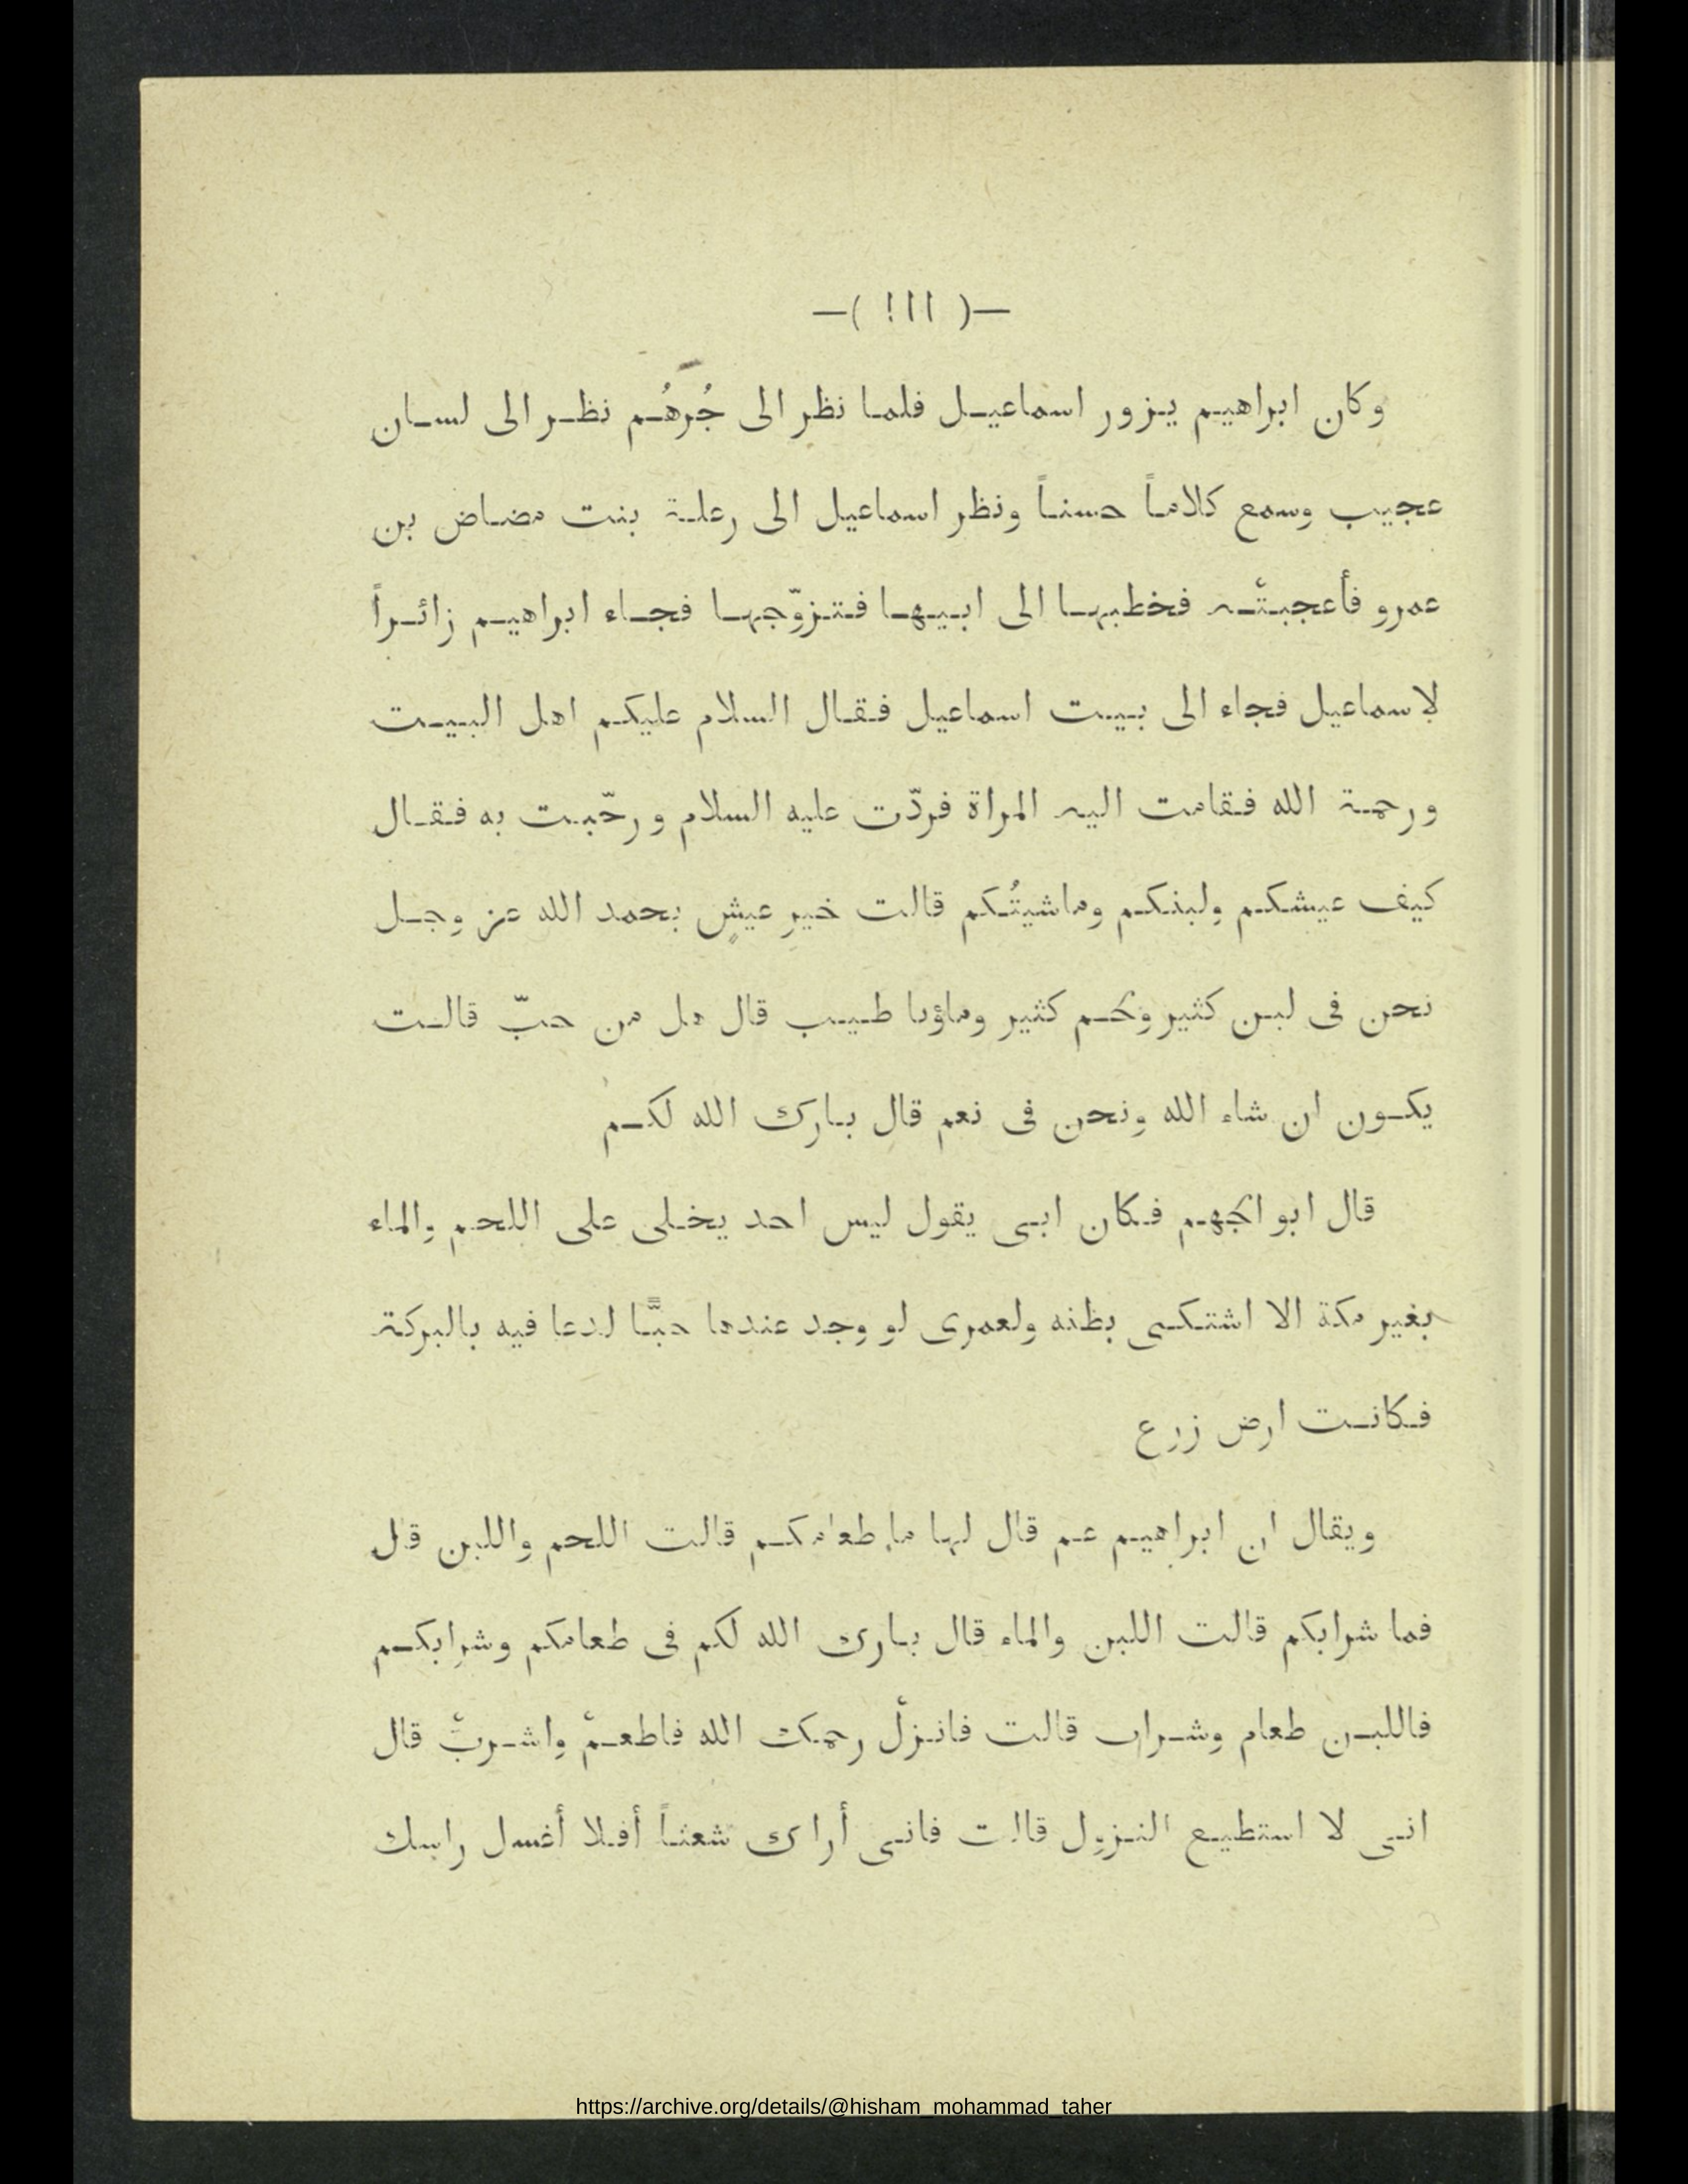 —( ١١١ )—
وكان ابراهيم يزور اسماعيل فلما نظر الى جُرهُم نظر الى لسان
عجيب وسمع كلاماً حسناً ونظر اسماعيل الى رعلة بنت مضاض بن
عمرو فأعجبتْه فخطبها الى ابيها فتزوّجها فجاء ابراهيم زائراً
لاسماعيل فجاء الى بيت اسماعيل فقال السلام عليكم اهل البيت
ورحمة الله فقامت اليه المراة فردّت عليه السلام ورحّبت به فقال
كيف عيشكم ولبنكم وماشيتُكم قالت خير عيشٍ بحمد الله عز وجل
نحن فى لبن كثير ولحم كثير وماؤنا طيب قال هل من حبّ قالت
يكون ان شاء الله ونحن فى نعم قال بارك الله لكم
قال ابو الجهم فكان ابى يقول ليس احد يخلى على اللحم والماء
بغير مكة الا اشتكى بظنه ولعمرى لو وجد عندها حبًّا لدعا فيه بالبركة
فكانت ارض زرع
ويقال ان ابراهيم عم قال لها ما طعامكم قالت اللحم واللبن قل
فما شرابكم قالت اللبن والماء قال بارك الله لكم فى طعامكم وشرابكم
فاللبن طعام وشراب قالت فانزلْ رحمك الله فاطعمْ واشربْ قال
انى لا استطيع النزول قالت فانى أراك شعثاً أفلا أغسل راسك
https://archive.org/details/@hisham_mohammad_taher